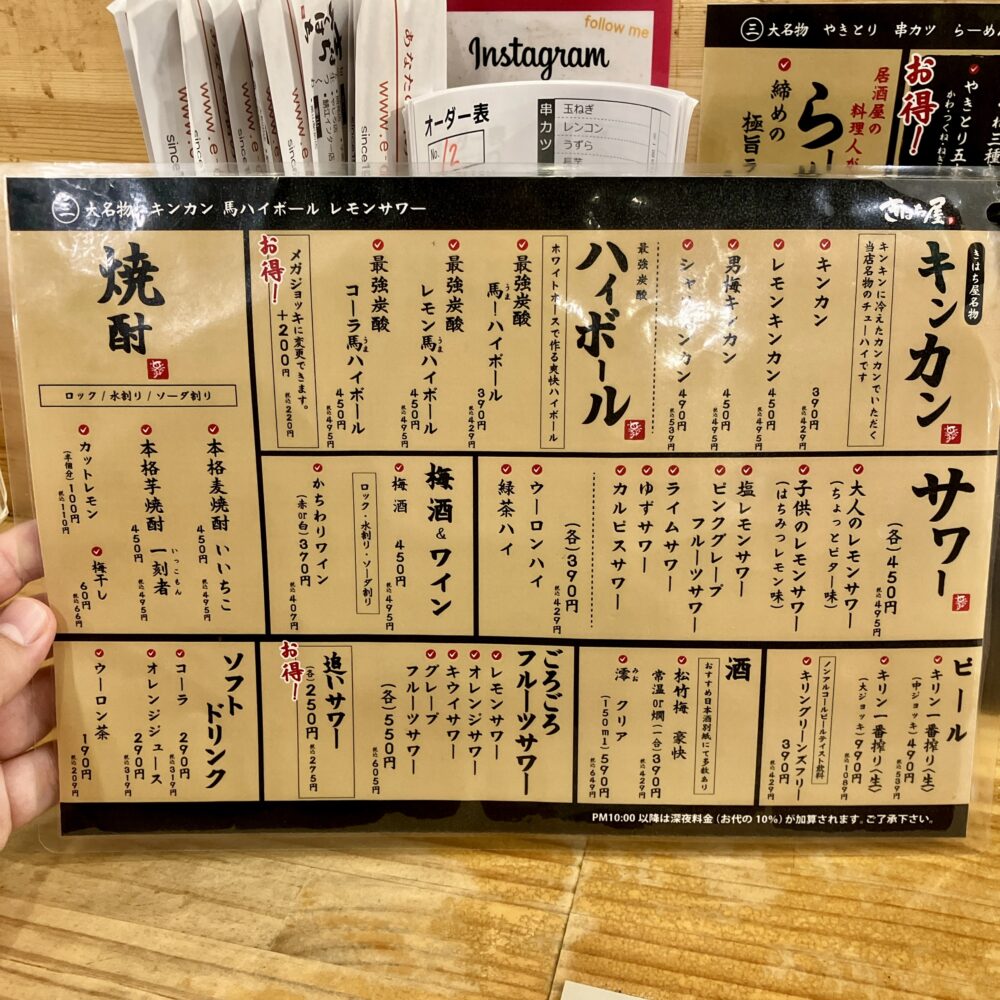 follow me
Instagram
オーダー表
No. 12
串カツ
玉ねぎ
レンコン
うずら
www.e-
www.e-
あなたの
since
㊂ 大名物 やきとり 串カツ らーめん
締めの
極旨ラ
らー
居酒屋の
料理人が
お得！
やきとり五
かわ・つくね・ねぎ
㊂ 大名物 キンカン 馬ハイボール レモンサワー
きはち屋
きはち屋名物
キンカン
キンキンに冷えたカンカンでいただく
当店名物のチューハイです
キンカン 390円 税込429円
レモンキンカン 450円 税込495円
男梅キンカン 450円 税込495円
490円 税込539円
最強炭酸
ハイボール
ホワイトホースで作る爽快ハイボール
最強炭酸
馬ーハイボール 390円 税込429円
うま
最強炭酸
レモン馬ハイボール 450円 税込495円
うま
最強炭酸
コーラ馬ハイボール 450円 税込495円
うま
お得！
メガジョッキに変更できます。
＋200円 税込220円
焼酎
ロック / 水割り / ソーダ割り
本格麦焼酎 いいちこ
450円 税込495円
本格芋焼酎 一刻者
いっこもん
450円 税込495円
カットレモン
（半個分）100円 税込110円
梅干し
60円 税込66円
サワー
（各）450円 税込495円
大人のレモンサワー
（ちょっとビター味）
子供のレモンサワー
（はちみつレモン味）
塩レモンサワー
ピンクグレープ
フルーツサワー
ライムサワー
ゆずサワー
カルピスサワー
（各）390円 税込429円
ウーロンハイ
緑茶ハイ
梅酒&ワイン
ロック・水割り・ソーダ割り
梅酒 450円 税込495円
かちわりワイン
（赤or白）370円 税込407円
ビール
キリン一番搾り〈生〉
（中ジョッキ）490円 税込539円
キリン一番搾り〈生〉
（大ジョッキ）990円 税込1089円
ノンアルコールビールテイスト飲料
キリングリーンズフリー
390円 税込429円
酒
おすすめ日本酒別紙にて多数あり
松竹梅 豪快
常温or燗（一合）390円 税込429円
澪 クリア
みお
（150ml）590円 税込649円
ごろごろ
フルーツサワー
（各）550円 税込605円
レモンサワー
オレンジサワー
キウイサワー
グレープ
フルーツサワー
お得！
追いサワー
（各）250円 税込275円
ソフト
ドリンク
コーラ 290円 税込319円
オレンジジュース 290円 税込319円
ウーロン茶 190円 税込209円
PM10:00 以降は深夜料金（お代の 10%）が加算されます。ご了承下さい。